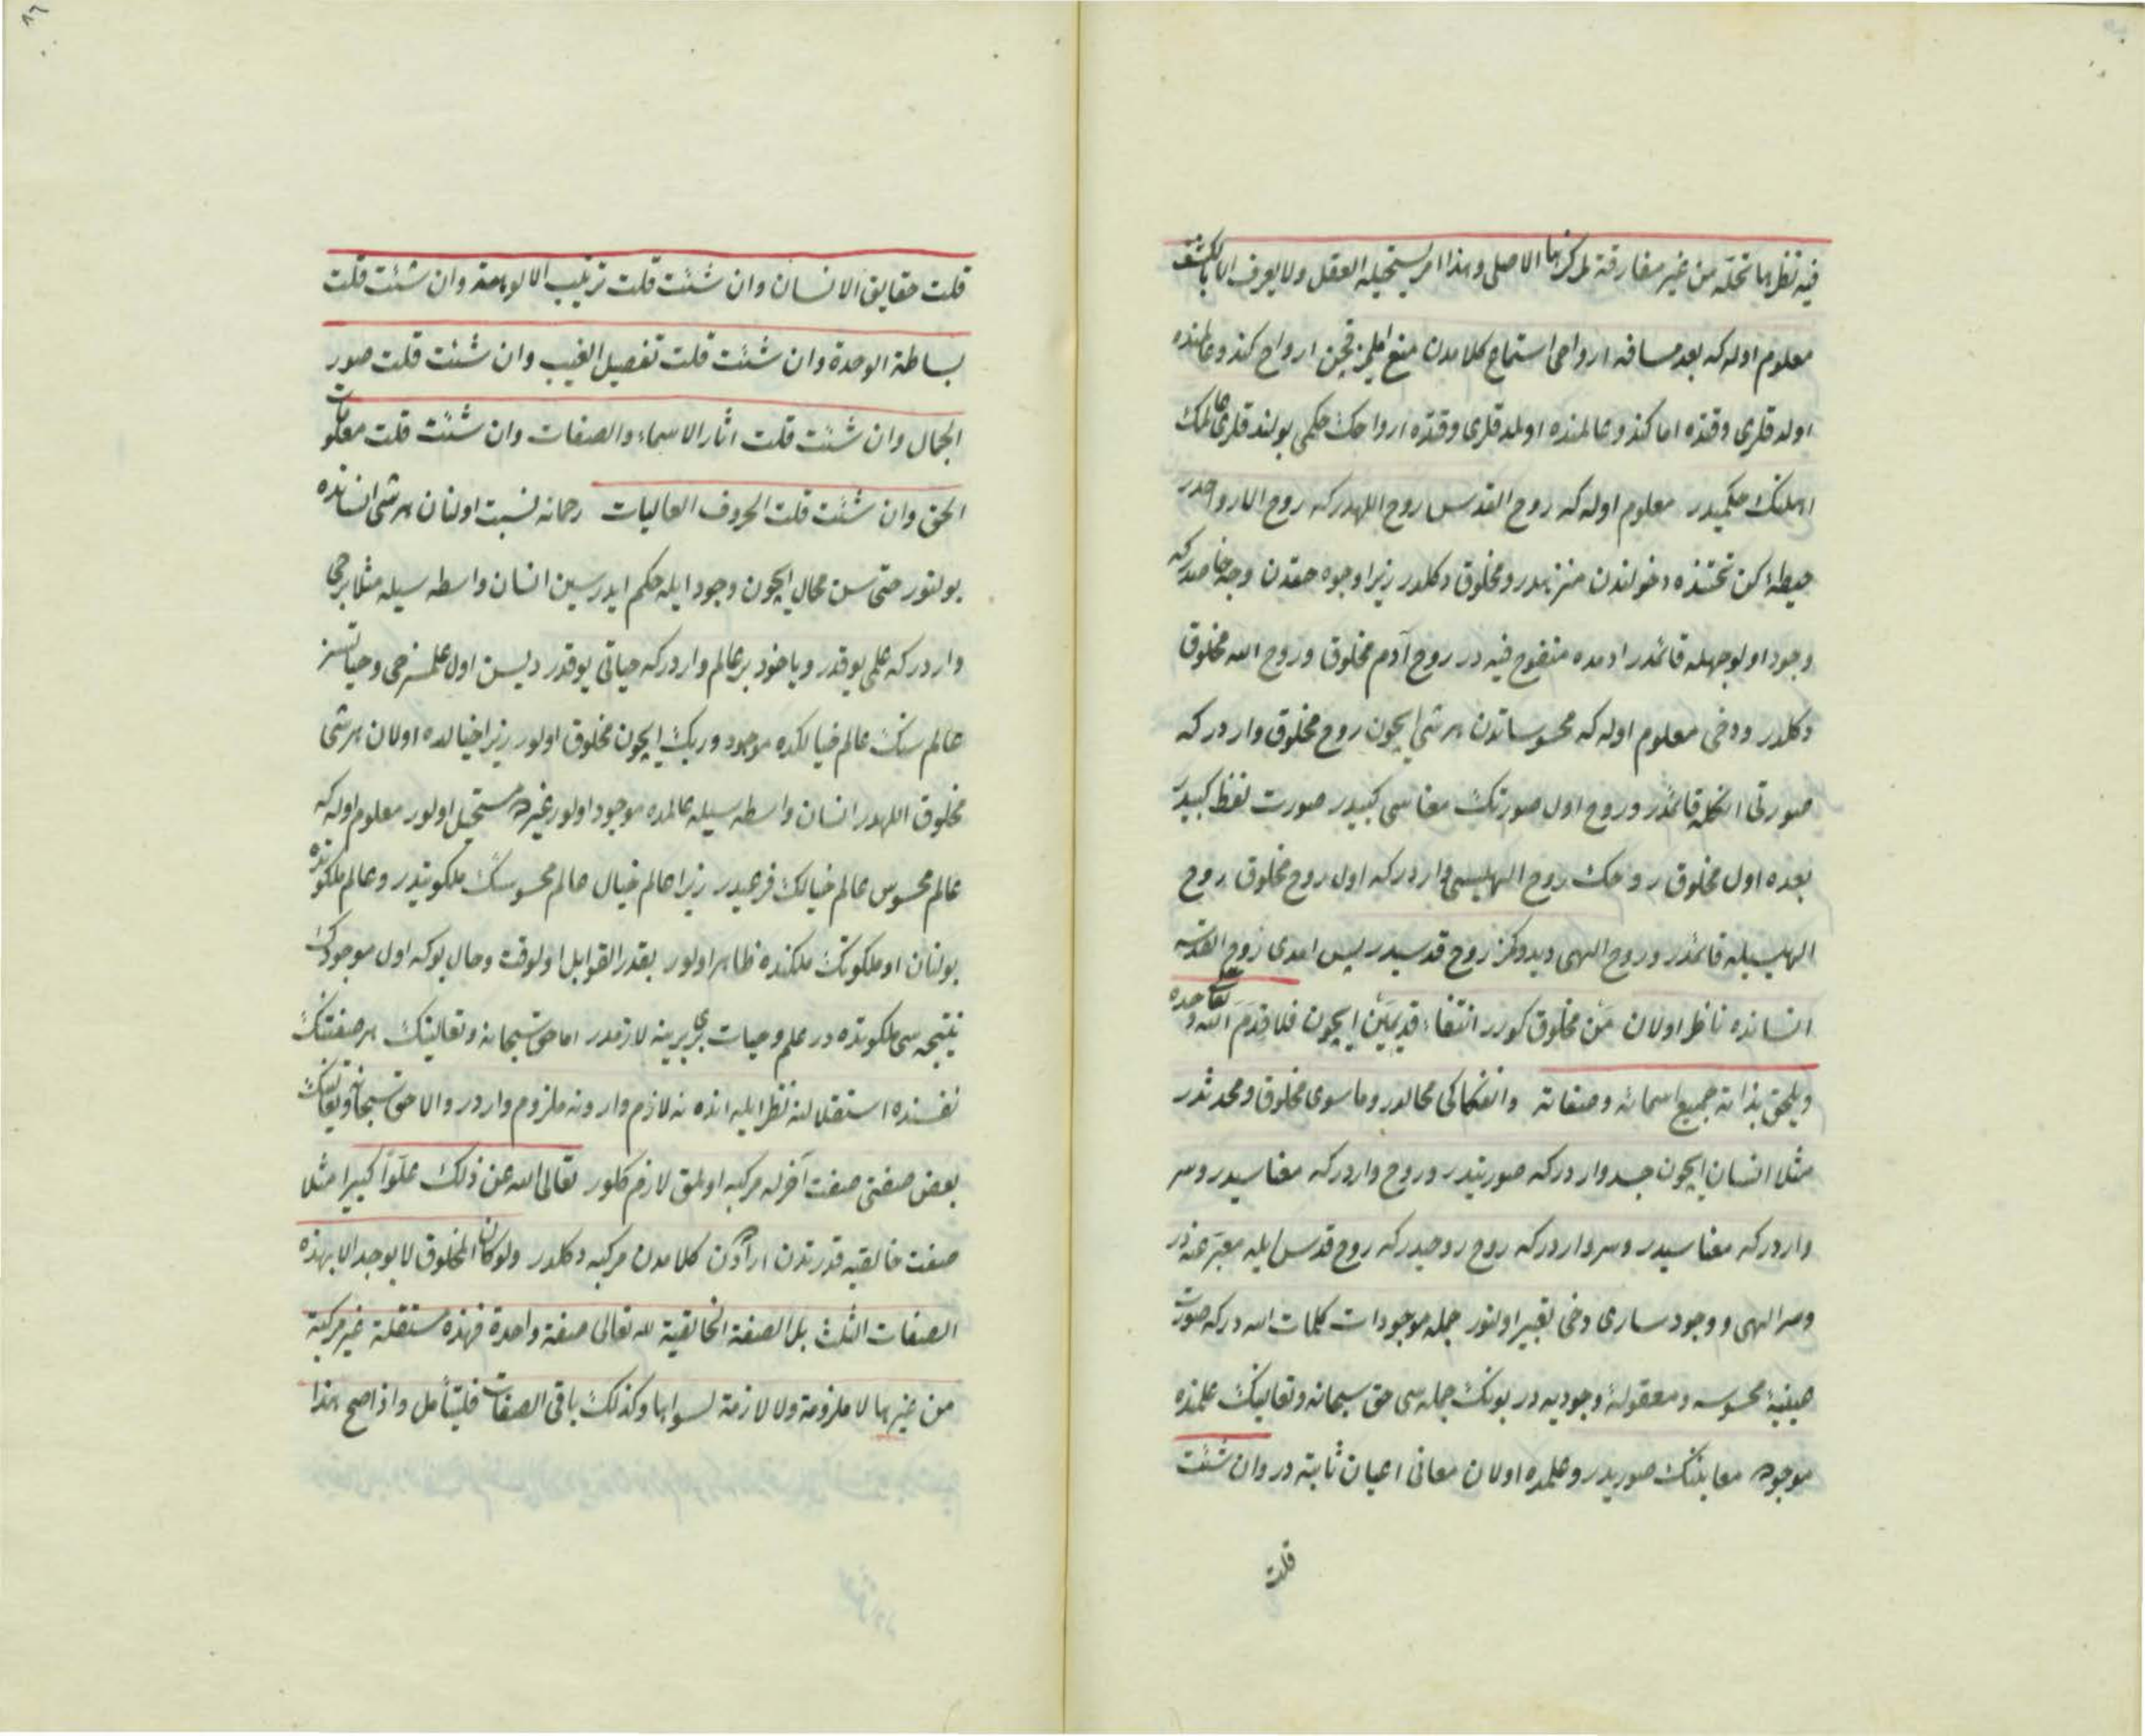 فيه نظرها تحله من غير مفارقة لمركزها الاصلى وهذا امر يستحيله العقل ولا يعرف الا بالكشف
معلوم اوله كه بعد مسافه ارواحى استماع كلامدن منع ايلمز قچن ارواح كندو عالمنده
اولدقلرى وقتده اما كندو عالمنده اولمدقلرى وقتده ارواحك حكمى بولندقلرى عالمك
اهلنك حكميدر معلوم اوله كه روح القدس روح اللهدر كه روح الارواحدر
حيطۀ كن تحتنده دخولندن منزهدر ومخلوق دكلدر زيرا وجوه حقدن وجه خاصدر كه
وجود اولوجهله قائمدر ادمده منفوخ فيه در روح آدم مخلوق وروح الله مخلوق
دكلدر ودخى معلوم اوله كه محسوساتدن هر شى ايچون روح مخلوق واردر كه
صورتى انكله قائمدر وروح اول صورتك معناسى كبيدر صورت لفظ كبيدر
بعده اول مخلوق روحك روح الهيسى واردر كه اول روح مخلوق روح
الهيسيله قائمدر وروح الهى ديدوكمز روح قدسيدر پس امدى روح القدسه
انسانده ناظر اولان مَن مخلوق كورر انتفاء قديمَين ايچون فلا قدم الله تعالى وحده
ويلحق بذاته جميع اسمائه وصفاته وانفكاكى محالدر وماسوى مخلوق ومحدثدر
مثلا انسان ايچون جسد واردر كه صورتيدر وروح واردر كه معناسيدر وسر
واردر كه معناسيدر وسر واردر كه روح روحيدر كه روح قدس ايله معبر عنه در
وسر الهى و وجود سارى دخى تعبير اولنور جمله موجودات كلمات الله در كه صورت
عينيۀ محسوسه ومعقولۀ وجوديه در بونك جمله سى حق سبحانه وتعالينك علمنده
موجوده معانينك صوريدر وعلمده اولان معانى اعيان ثابته در وان شئت
قلت
قلت حقايق الانسان وان شئت قلت ترتيب الالوهة وان شئت قلت
بساطة الوحدة وان شئت قلت تفصيل الغيب وان شئت قلت صور
الجمال وان شئت قلت اثار الاسماء والصفات وان شئت قلت معلومات
الحق وان شئت قلت الحروف العاليات رحمانه نسبت اولنان هر شى انسانده
بولنور حتى سن محال ايچون وجود ايله حكم ايدرسين انسان واسطه سيله مثلا بر حى
واردر كه علمى يوقدر وياخود بر عالم واردر كه حياتى يوقدر ديسن اول علمسز حى وحياتسز
عالم سنك عالم خيالكده موجود وربك ايچون مخلوق اولور زيرا خيالده اولان هر شى
مخلوق اللهدر انسان واسطه سيله عالمده موجود اولور غيرده مستحيل اولور معلوم اوله كه
عالم محسوس عالم خيالك فرعيدر زيرا عالم خيال عالم محسوسك ملكوتيدر وعالم ملكوتده
بولنان او ملكوتك ملكنده ظاهر اولور بقدر القوابل اولوقت وحال بوكه اول موجودك
نتيجه سى ملكوتده در علم وحيات برى برينه لازمدر اما حق سبحانه وتعالينك هر صفتنك
نفسنده استقلالنه نظر ايله انده نه لازم وار ونه ملزوم واردر والا حق سبحانه وتعالينك
بعض صفتى صفت آخرله مركبه اولمق لازم كلور تعالى الله عن ذلك علوا كبيرا مثلا
صفت خالقيه قدرتدن ارادتدن كلامدن مركبه دكلدر ولو كان المخلوق لا يوجد الا بهذه
الصفات الثلث بل الصفة الخالقية لله تعالى صفة واحدة فهذه مستقلة غير مركبة
من غيرها لا ملزومة ولا لازمة لسواها وكذلك باقى الصفات فليتأمل واذا صح هذا